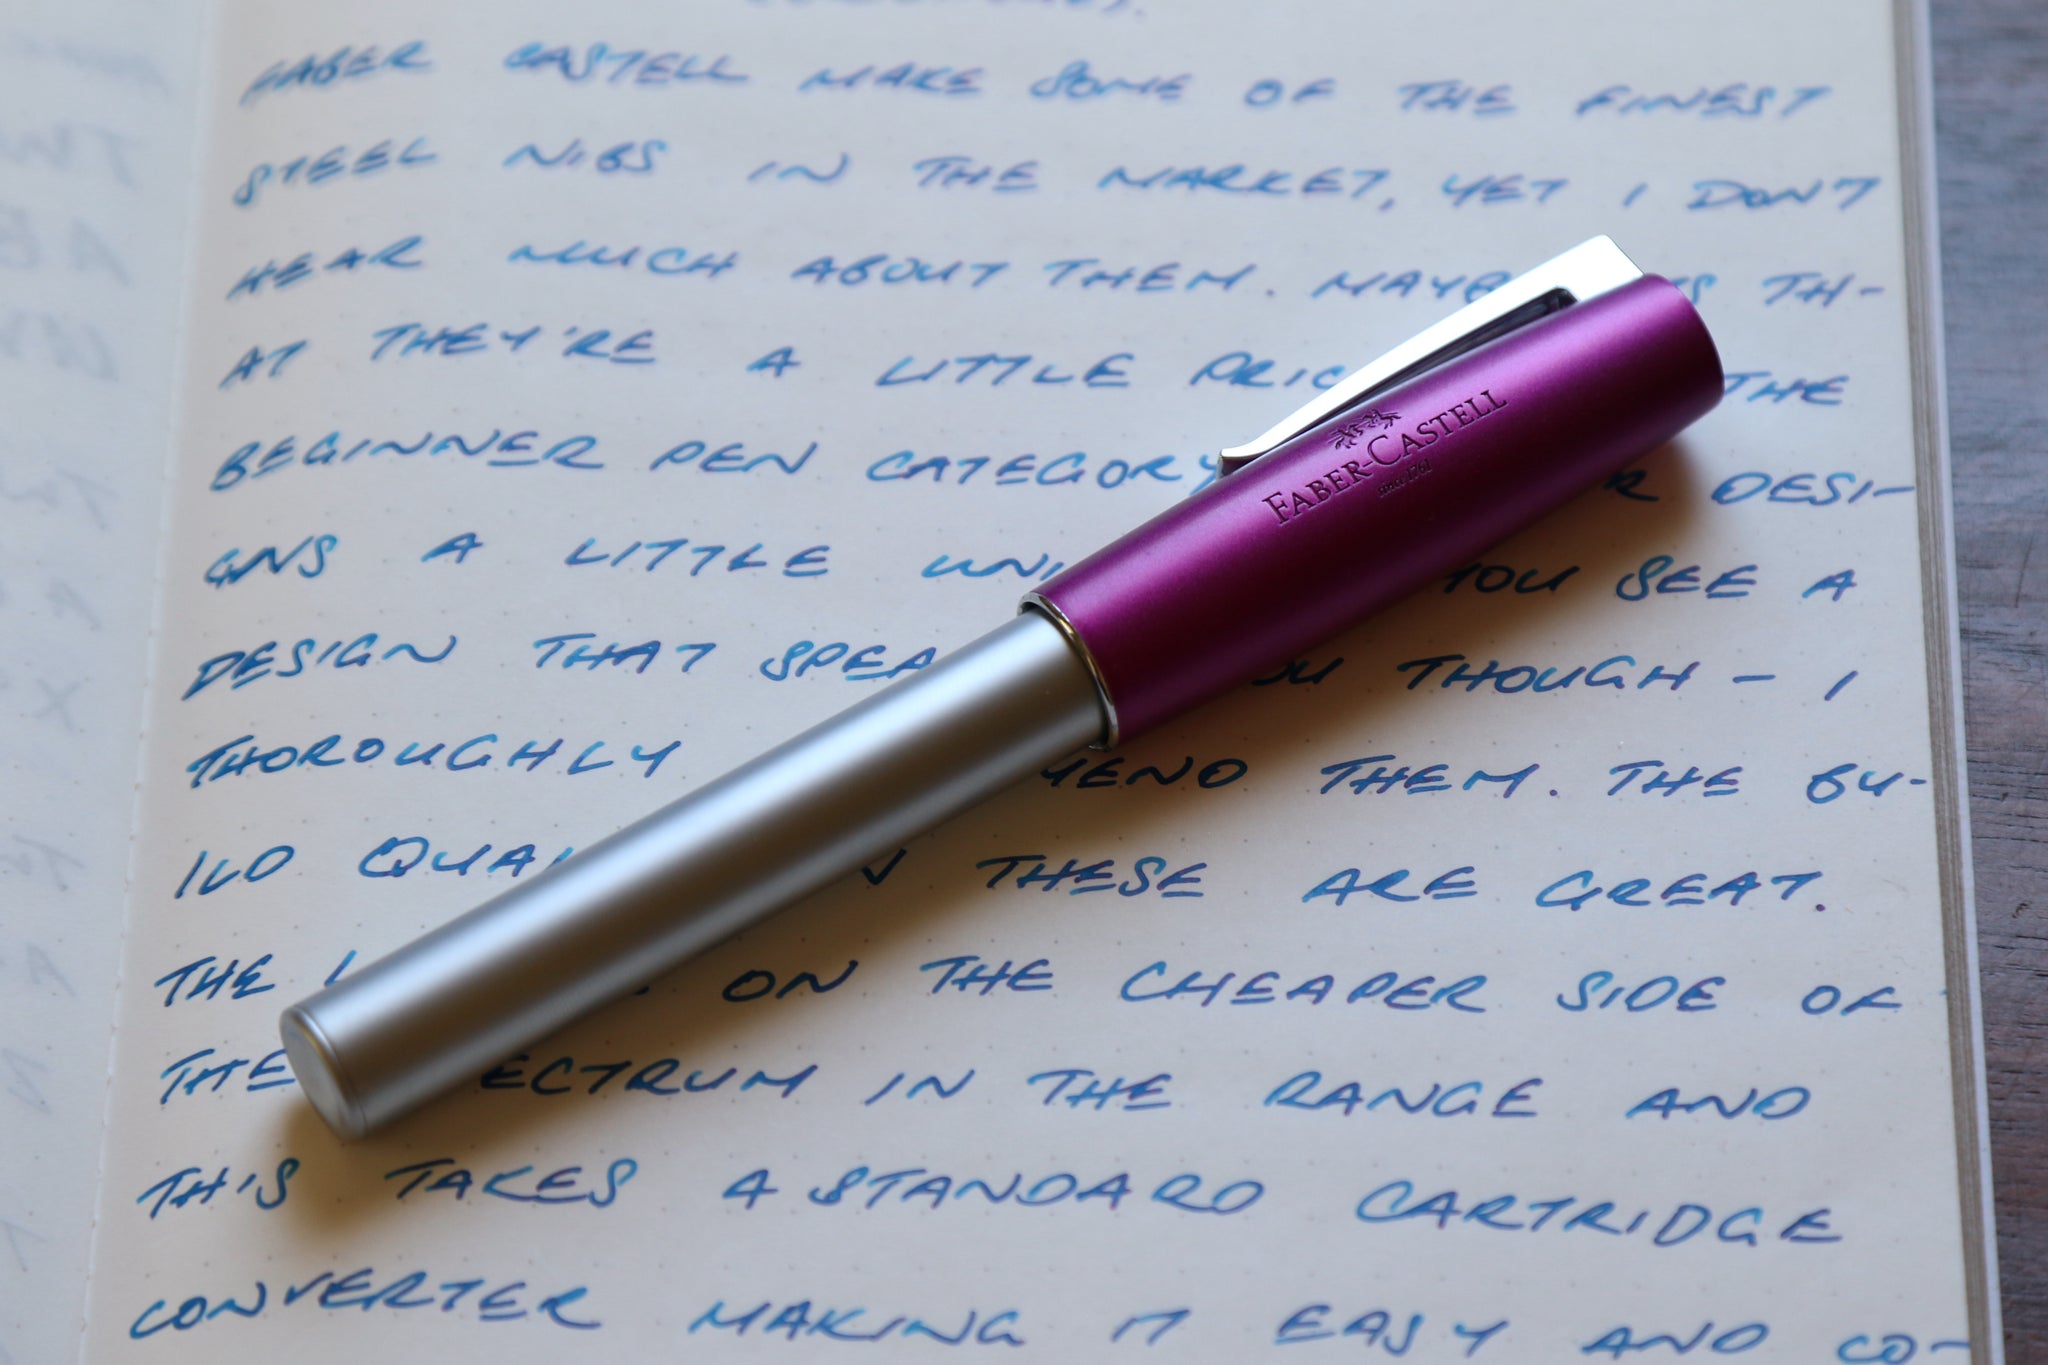 FABER CASTELL MAKE SOME OF THE FINEST
STEEL NIBS IN THE MARKET, YET I DON'T
HEAR MUCH ABOUT THEM. MAYB TH-
AT THEY'RE A LITTLE PRIC THE
BEGINNER PEN CATEGORY R DESI-
GNS A LITTLE UNI YOU SEE A
DESIGN THAT SPEA OU THOUGH - I
THOROUGHLY MEND THEM. THE BU-
ILD QUAL N THESE ARE GREAT.
THE ON THE CHEAPER SIDE OF
THE ECTRUM IN THE RANGE AND
THIS TAKES A STANDARD CARTRIDGE
CONVERTER MAKING IT EASY AND CO-
FABER-CASTELL
since 1761